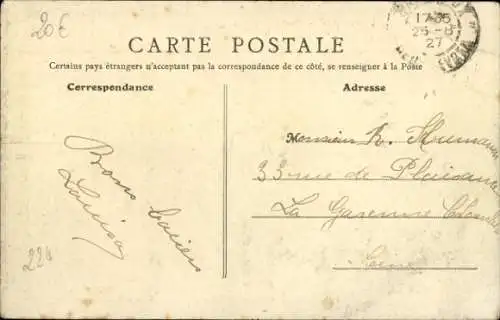 20€
17 35
25-8
27
CARTE POSTALE
Certains pays étrangers n'acceptant pas la correspondance de ce côté, se renseigner à la Poste
Correspondance
Adresse
Bons baisers
Louison
Monsieur R.
33 rue de Plaisance
La Garenne Colombes
Seine
224